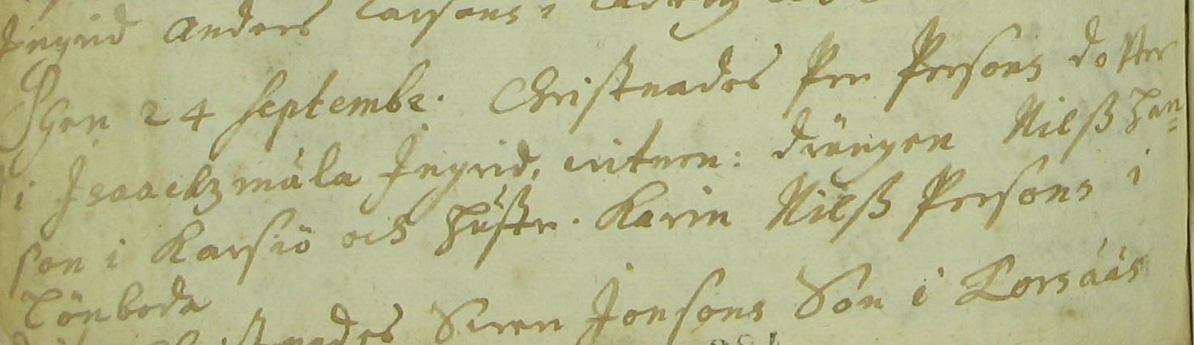 Ingrid Anders Larsons
Then 24 Septembr. Christnades Per Persons dotter
i Isaackzmåla Ingrid, vitnen: drängen Nilß Han=
son i Karsiö och Hustr. Karin Nilß Persons i
Tönboda
Christnades Swen Jonsons Son i Torsåås